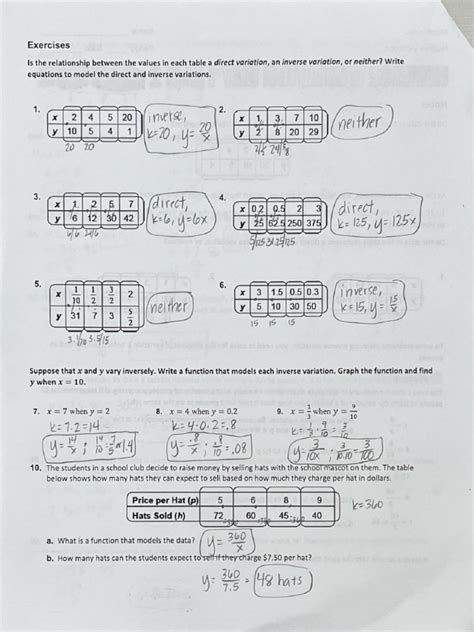 Exercises
Is the relationship between the values in each table a direct variation, an inverse variation, or neither? Write
equations to model the direct and inverse variations.
1. x 2 4 5 20
y 10 5 4 1
20 20
inverse,
k=20, y=20/x
2. x 1 3 7 10
y 2 8 20 29
neither
3. x 1 2 5 7
y 6 12 30 42
direct,
k=6, y=6x
4. x 0.2 0.5 2 3
y 25 62.5 250 375
direct,
k=125, y=125x
5. x 1/10 1/2 3/2 2
y 31 7 3 5/2
neither
6. x 3 1.5 0.5 0.3
y 5 10 30 50
15 15 15
inverse,
k=15, y=15/x
Suppose that x and y vary inversely. Write a function that models each inverse variation. Graph the function and find
y when x = 10.
7. x = 7 when y = 2
k=7.2=14
y=14/x ; 14/10=7/5=1.4
8. x = 4 when y = 0.2
k=4·0.2=.8
y=.8/x ; .8/10=.08
9. x = 1/3 when y = 9/10
k=1/3·9/10=3/10
y=3/10x ; 3/10·10=3/100
10. The students in a school club decide to raise money by selling hats with the school mascot on them. The table
below shows how many hats they can expect to sell based on how much they charge per hat in dollars.
Price per Hat (p) 5 6 8 9
Hats Sold (h) 72 60 45 40
k=360
a. What is a function that models the data? y=360/x
b. How many hats can the students expect to sell if they charge $7.50 per hat?
y=360/7.5=48 hats